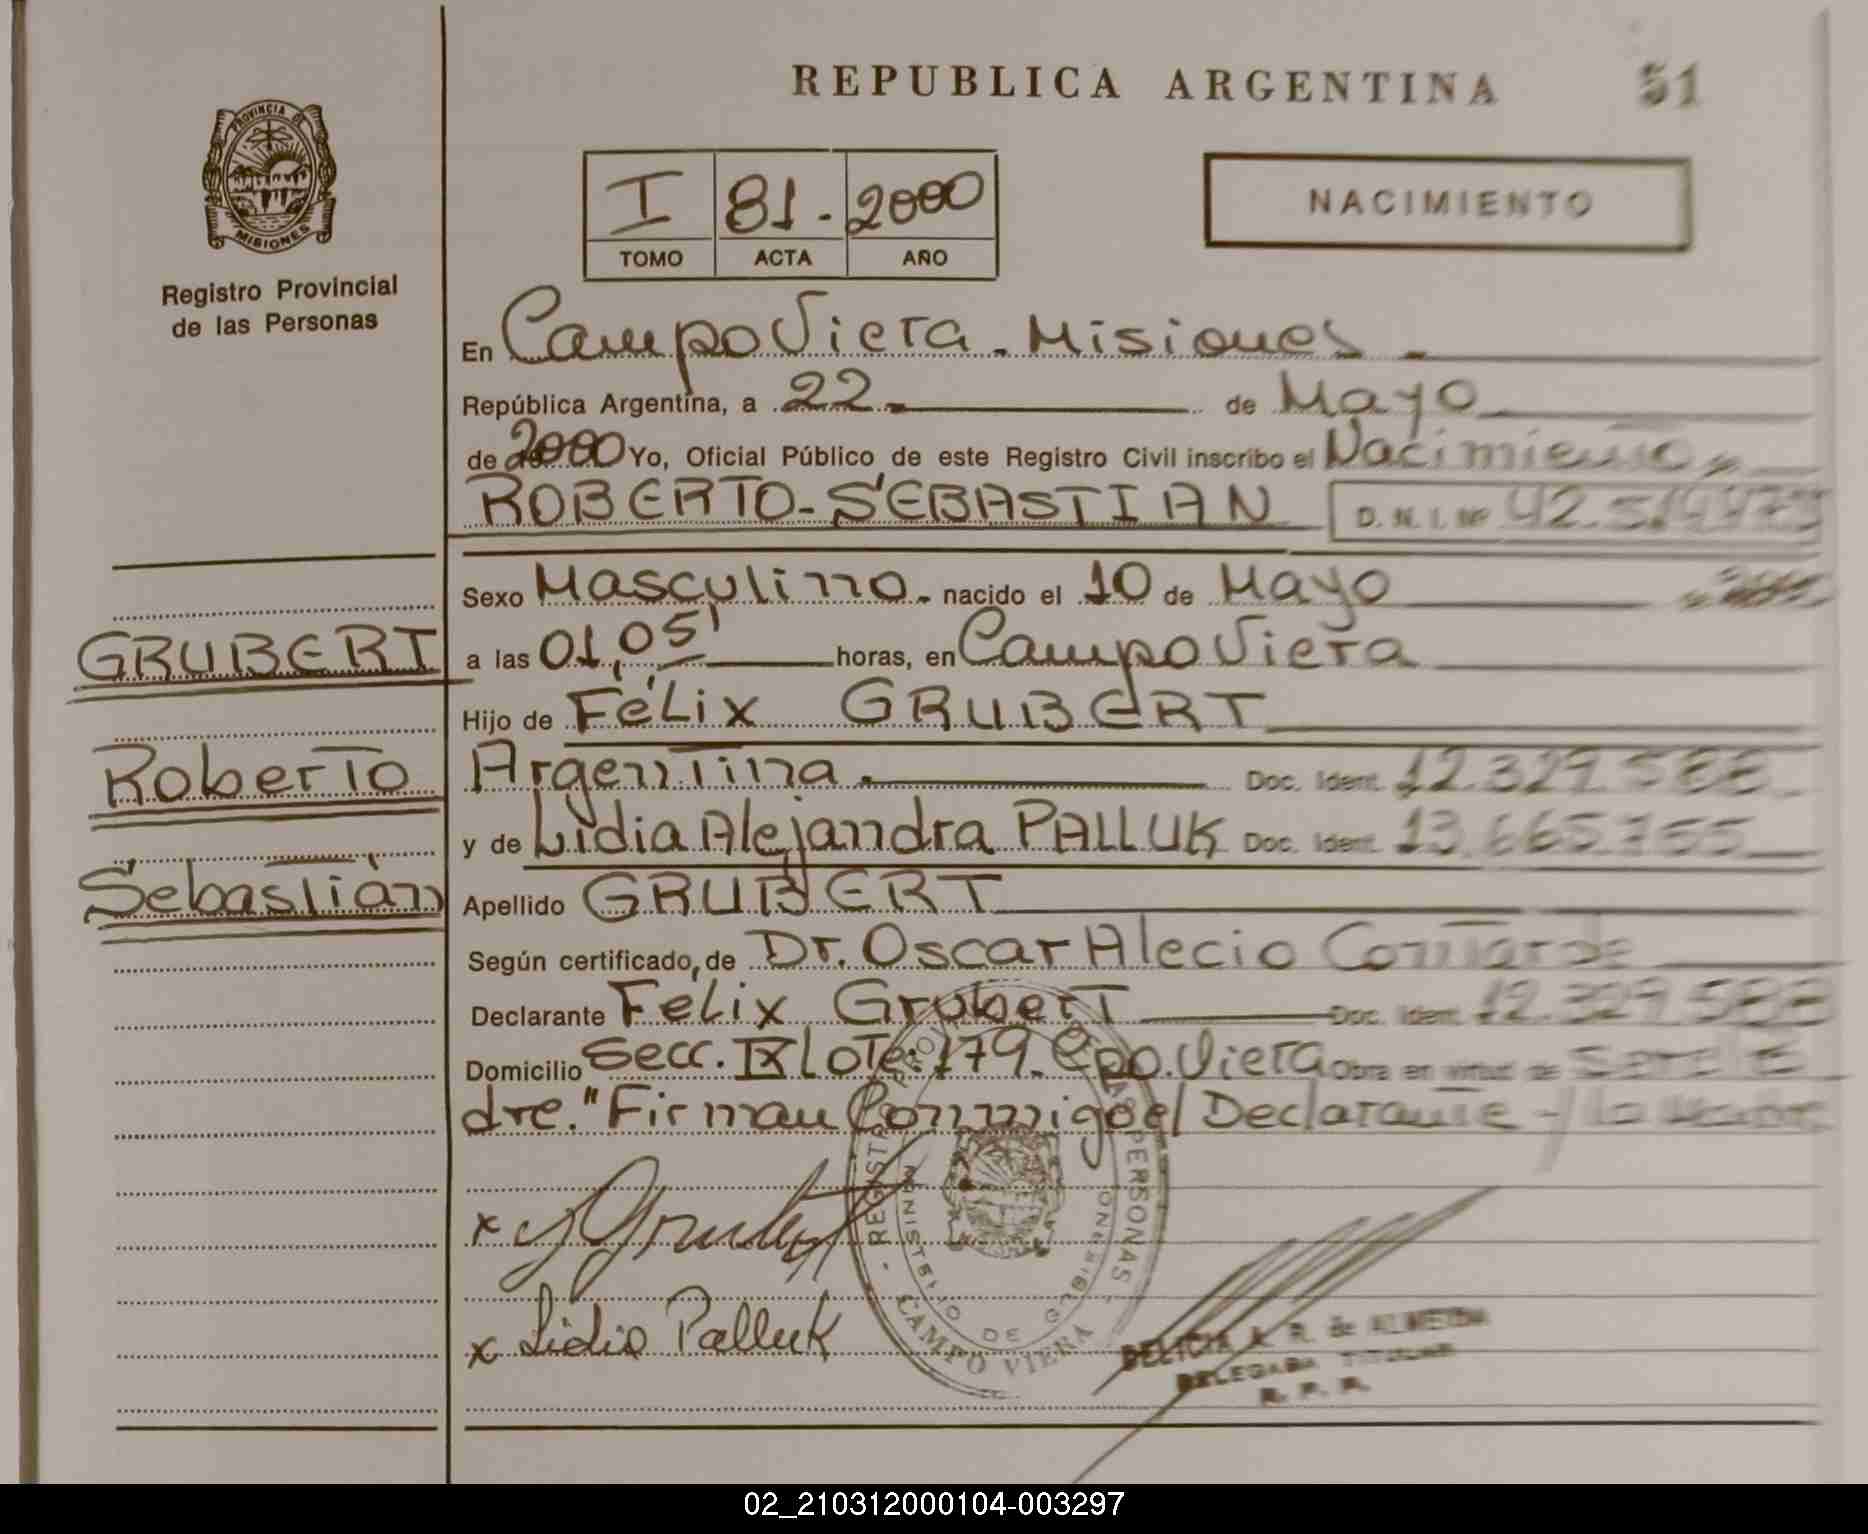 REPUBLICA ARGENTINA 51
PROVINCIA DE
MISIONES
Registro Provincial
de las Personas
I 81.- 2000
TOMO ACTA AÑO
NACIMIENTO
En Campo Viera - Misiones -
República Argentina, a 22 - de Mayo
de 2000 Yo, Oficial Público de este Registro Civil inscribo el Nacimiento
ROBERTO - SEBASTIAN D. N. I. Nº
Sexo Masculino - nacido el 10 de Mayo
GRUBERT
a las 01,05' horas, en Campo Viera
Hijo de Félix GRUBERT
Roberto
Argentina - Doc. Ident. 12.329.588
y de Lidia Alejandra PALLUK Doc. Ident. 13.665.755
Sebastián
Apellido GRUBERT
Según certificado, de Dr. Oscar Alecio
Declarante Félix Grubert Doc. Ident. 12.329.588
Domicilio Secc. IX Lote: 179 - Cpo. Viera Obra en virtud de
dre." Firman Conmigo el Declarante
REGISTRO PERSONAS
MINISTERIO DE GOBIERNO
CAMPO VIERA
x Grubert
x Lidia Palluk
DELICIA A. R. de ALMEIDA
DELEGADA TITULAR
R. P. P.
02_210312000104-003297